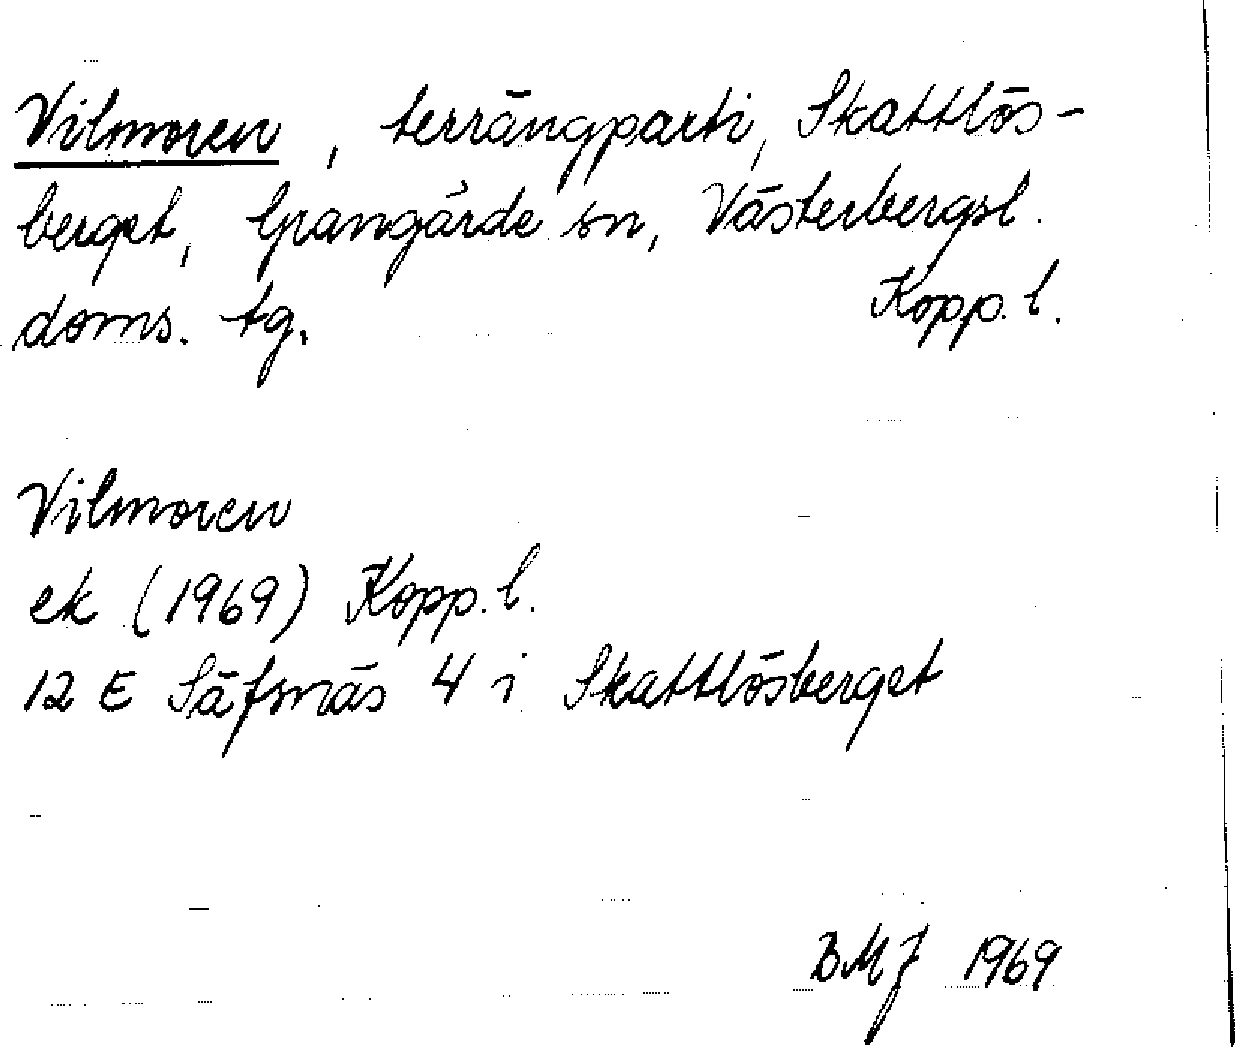 Vilmoren, terrängparti, Skattlös-
berget, Grangärde sn, Västerbergsl.
doms. tg. Kopp. l.
Vilmoren
ek (1969) Kopp. l.
12 E Säfsnäs 4 i Skattlösberget
BMJ 1969